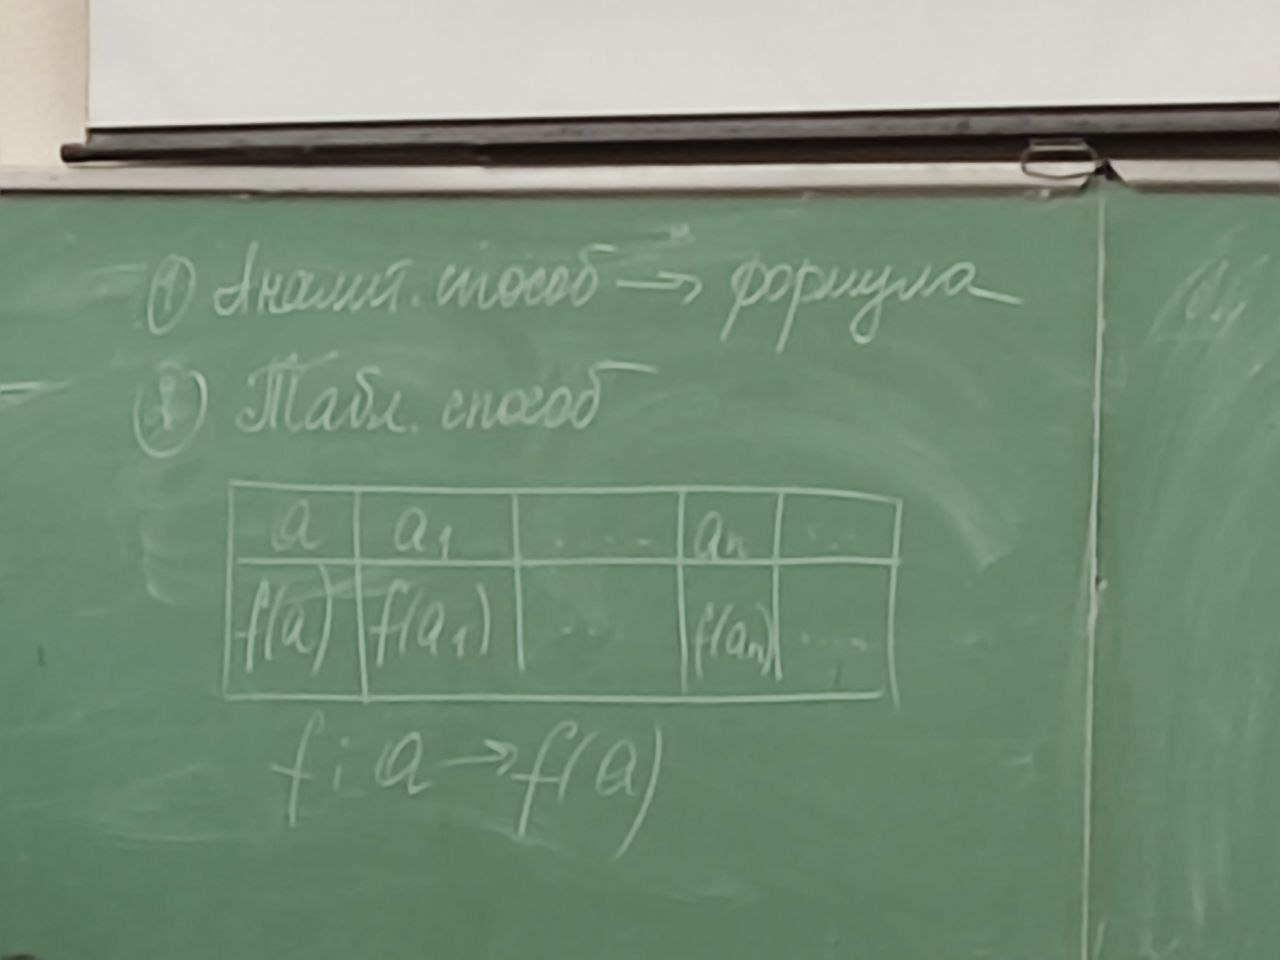 ① Аналит. способ → формула
② Табл. способ
a a₁ ..... aₙ ...
f(a) f(a₁) ... f(aₙ) ....
f : a → f(a)